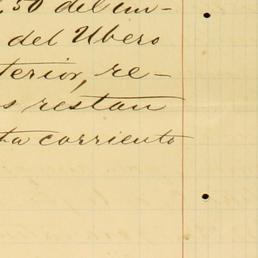 50 del im-
del Ubero
terior, re-
s restan
ta corriente